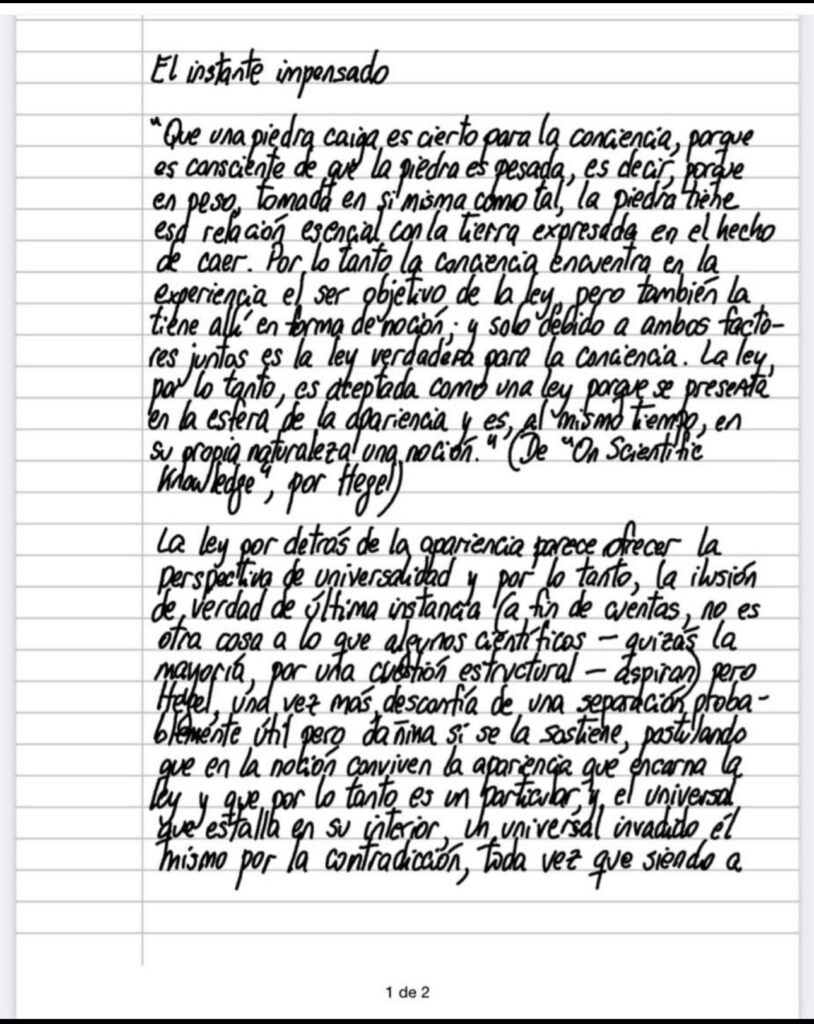 El instante impensado
"Que una piedra caiga es cierto para la conciencia, porque
es consciente de que la piedra es pesada, es decir, porque
en peso, tomada en si misma como tal, la piedra tiene
esa relación esencial con la tierra expresada en el hecho
de caer. Por lo tanto la conciencia encuentra en la
experiencia el ser objetivo de la ley, pero también la
tiene allí en forma de noción; y solo debido a ambos facto-
res juntos es la ley verdadera para la conciencia. La ley,
por lo tanto, es aceptada como una ley porque se presenta
en la esfera de la apariencia y es, al mismo tiempo, en
su propia naturaleza una noción." (De "On Scientific
Knowledge", por Hegel)
La ley por detrás de la apariencia parece ofrecer la
perspectiva de universalidad y por lo tanto, la ilusión
de verdad de última instancia (a fin de cuentas, no es
otra cosa a lo que algunos científicos – quizás la
mayoría, por una cuestión estructural – aspiran) pero
Hegel, una vez más, desconfía de una separación proba-
blemente útil pero dañina si se la sostiene, postulando
que en la noción conviven la apariencia que encarna la
ley y que por lo tanto es un particular, y el universal
que estalla en su interior, un universal invadido él
mismo por la contradicción, toda vez que siendo a
1 de 2